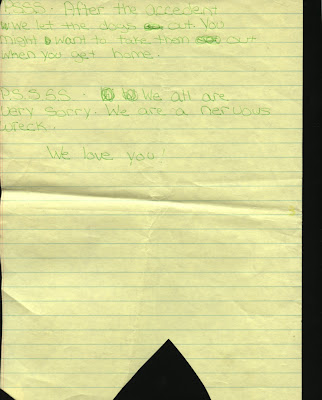 P.S.S.S. After the accedent
we let the dogs out. You
might want to take them out
when you get home.
P.S.S.S.S. We all are
very sorry. We are a nervous
wreck.
We love you!